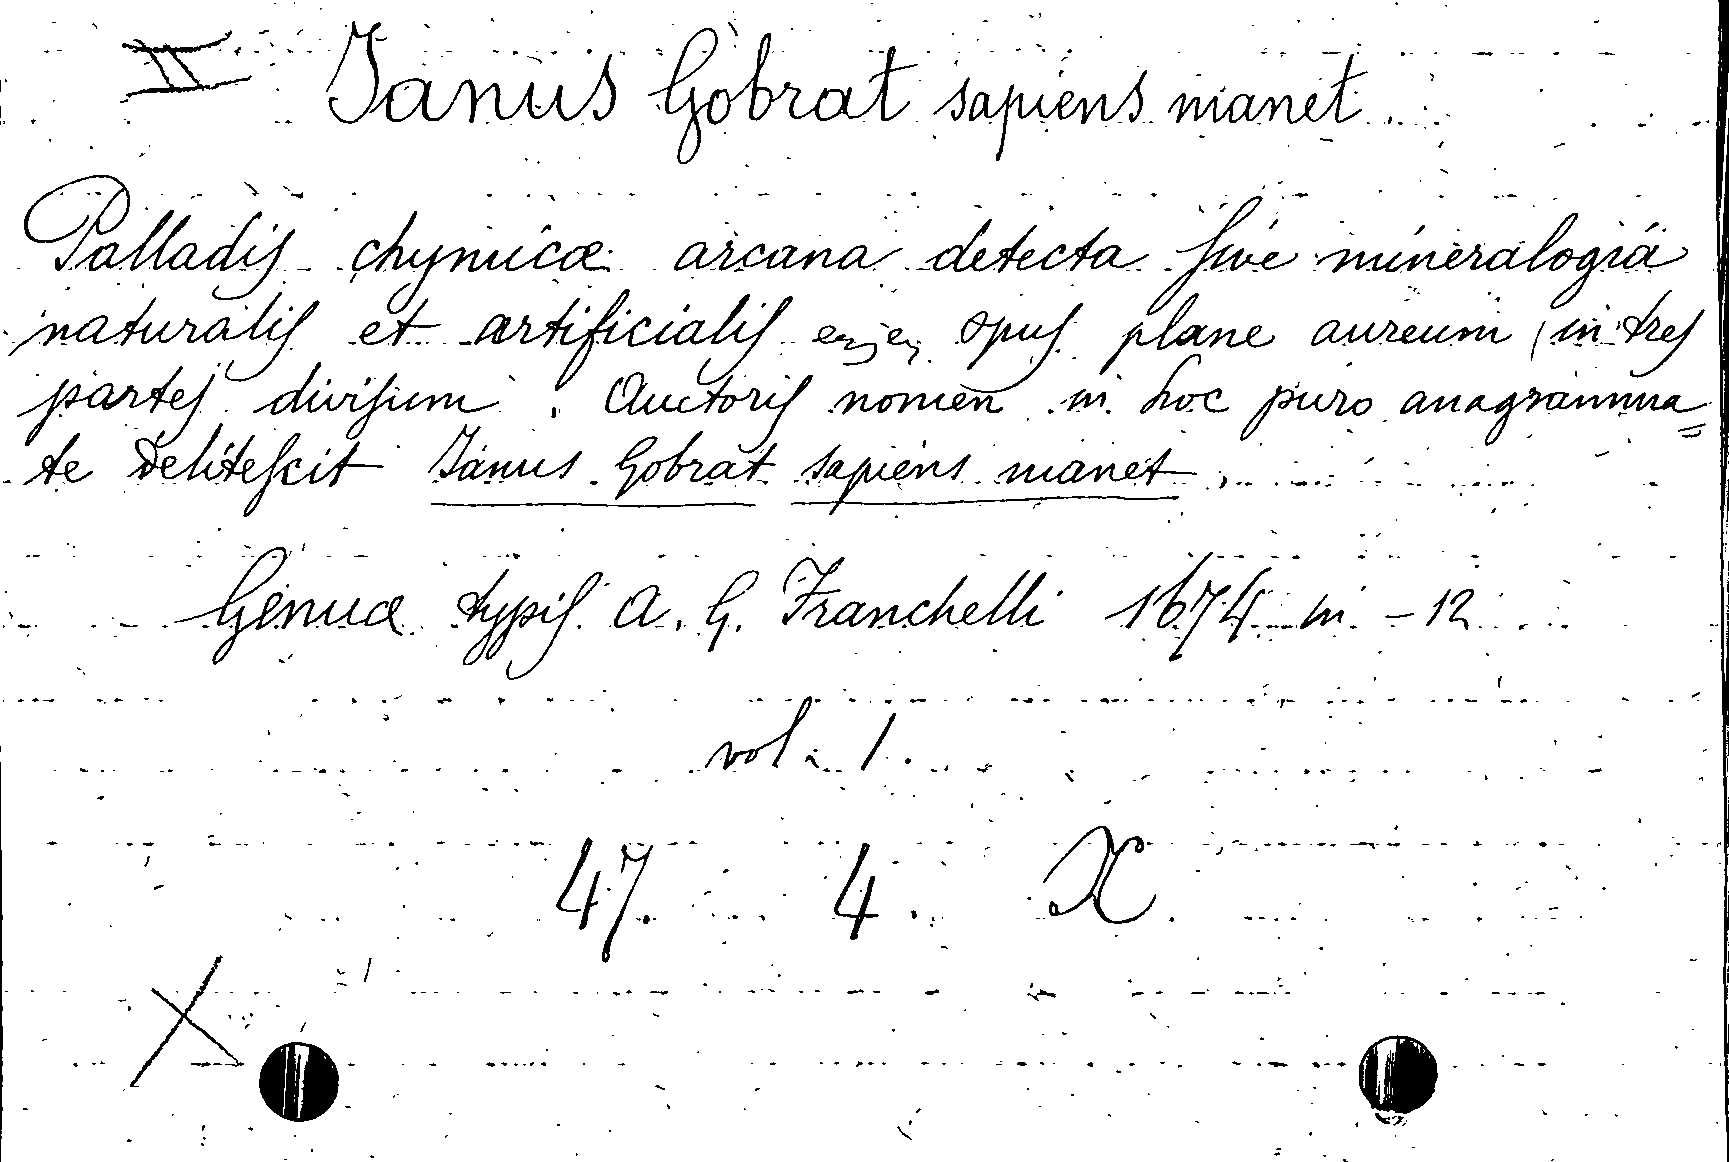 II Janus Gobrat sapiens manet.
Palladis chymicæ arcana detecta sive mineralogia
naturalis et artificialis opus plane aureum in tres
partes divisum. Auctoris nomen in hoc puro anagramma=
te delitescit Janus Gobrat sapiens manet
Genuæ typis A. G. Franchelli 1674 in-12
vol. 1.
47. 4. X.
X